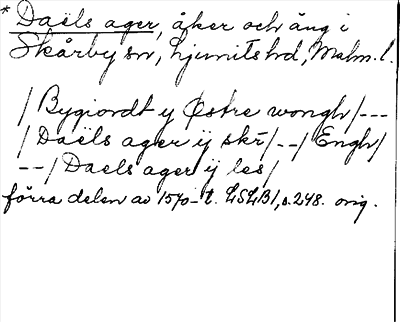 * Daëls ager, åker och äng i
Skårby sn, Ljunits hd, Malm. l.
/ Bygiordt y Østre wongh /---
/ Daëls ager ÿ skr̄ /--/ Engh /
--/ Daels ager ÿ les /
förra delen av 1570-t. LSLB1, s. 248. orig.